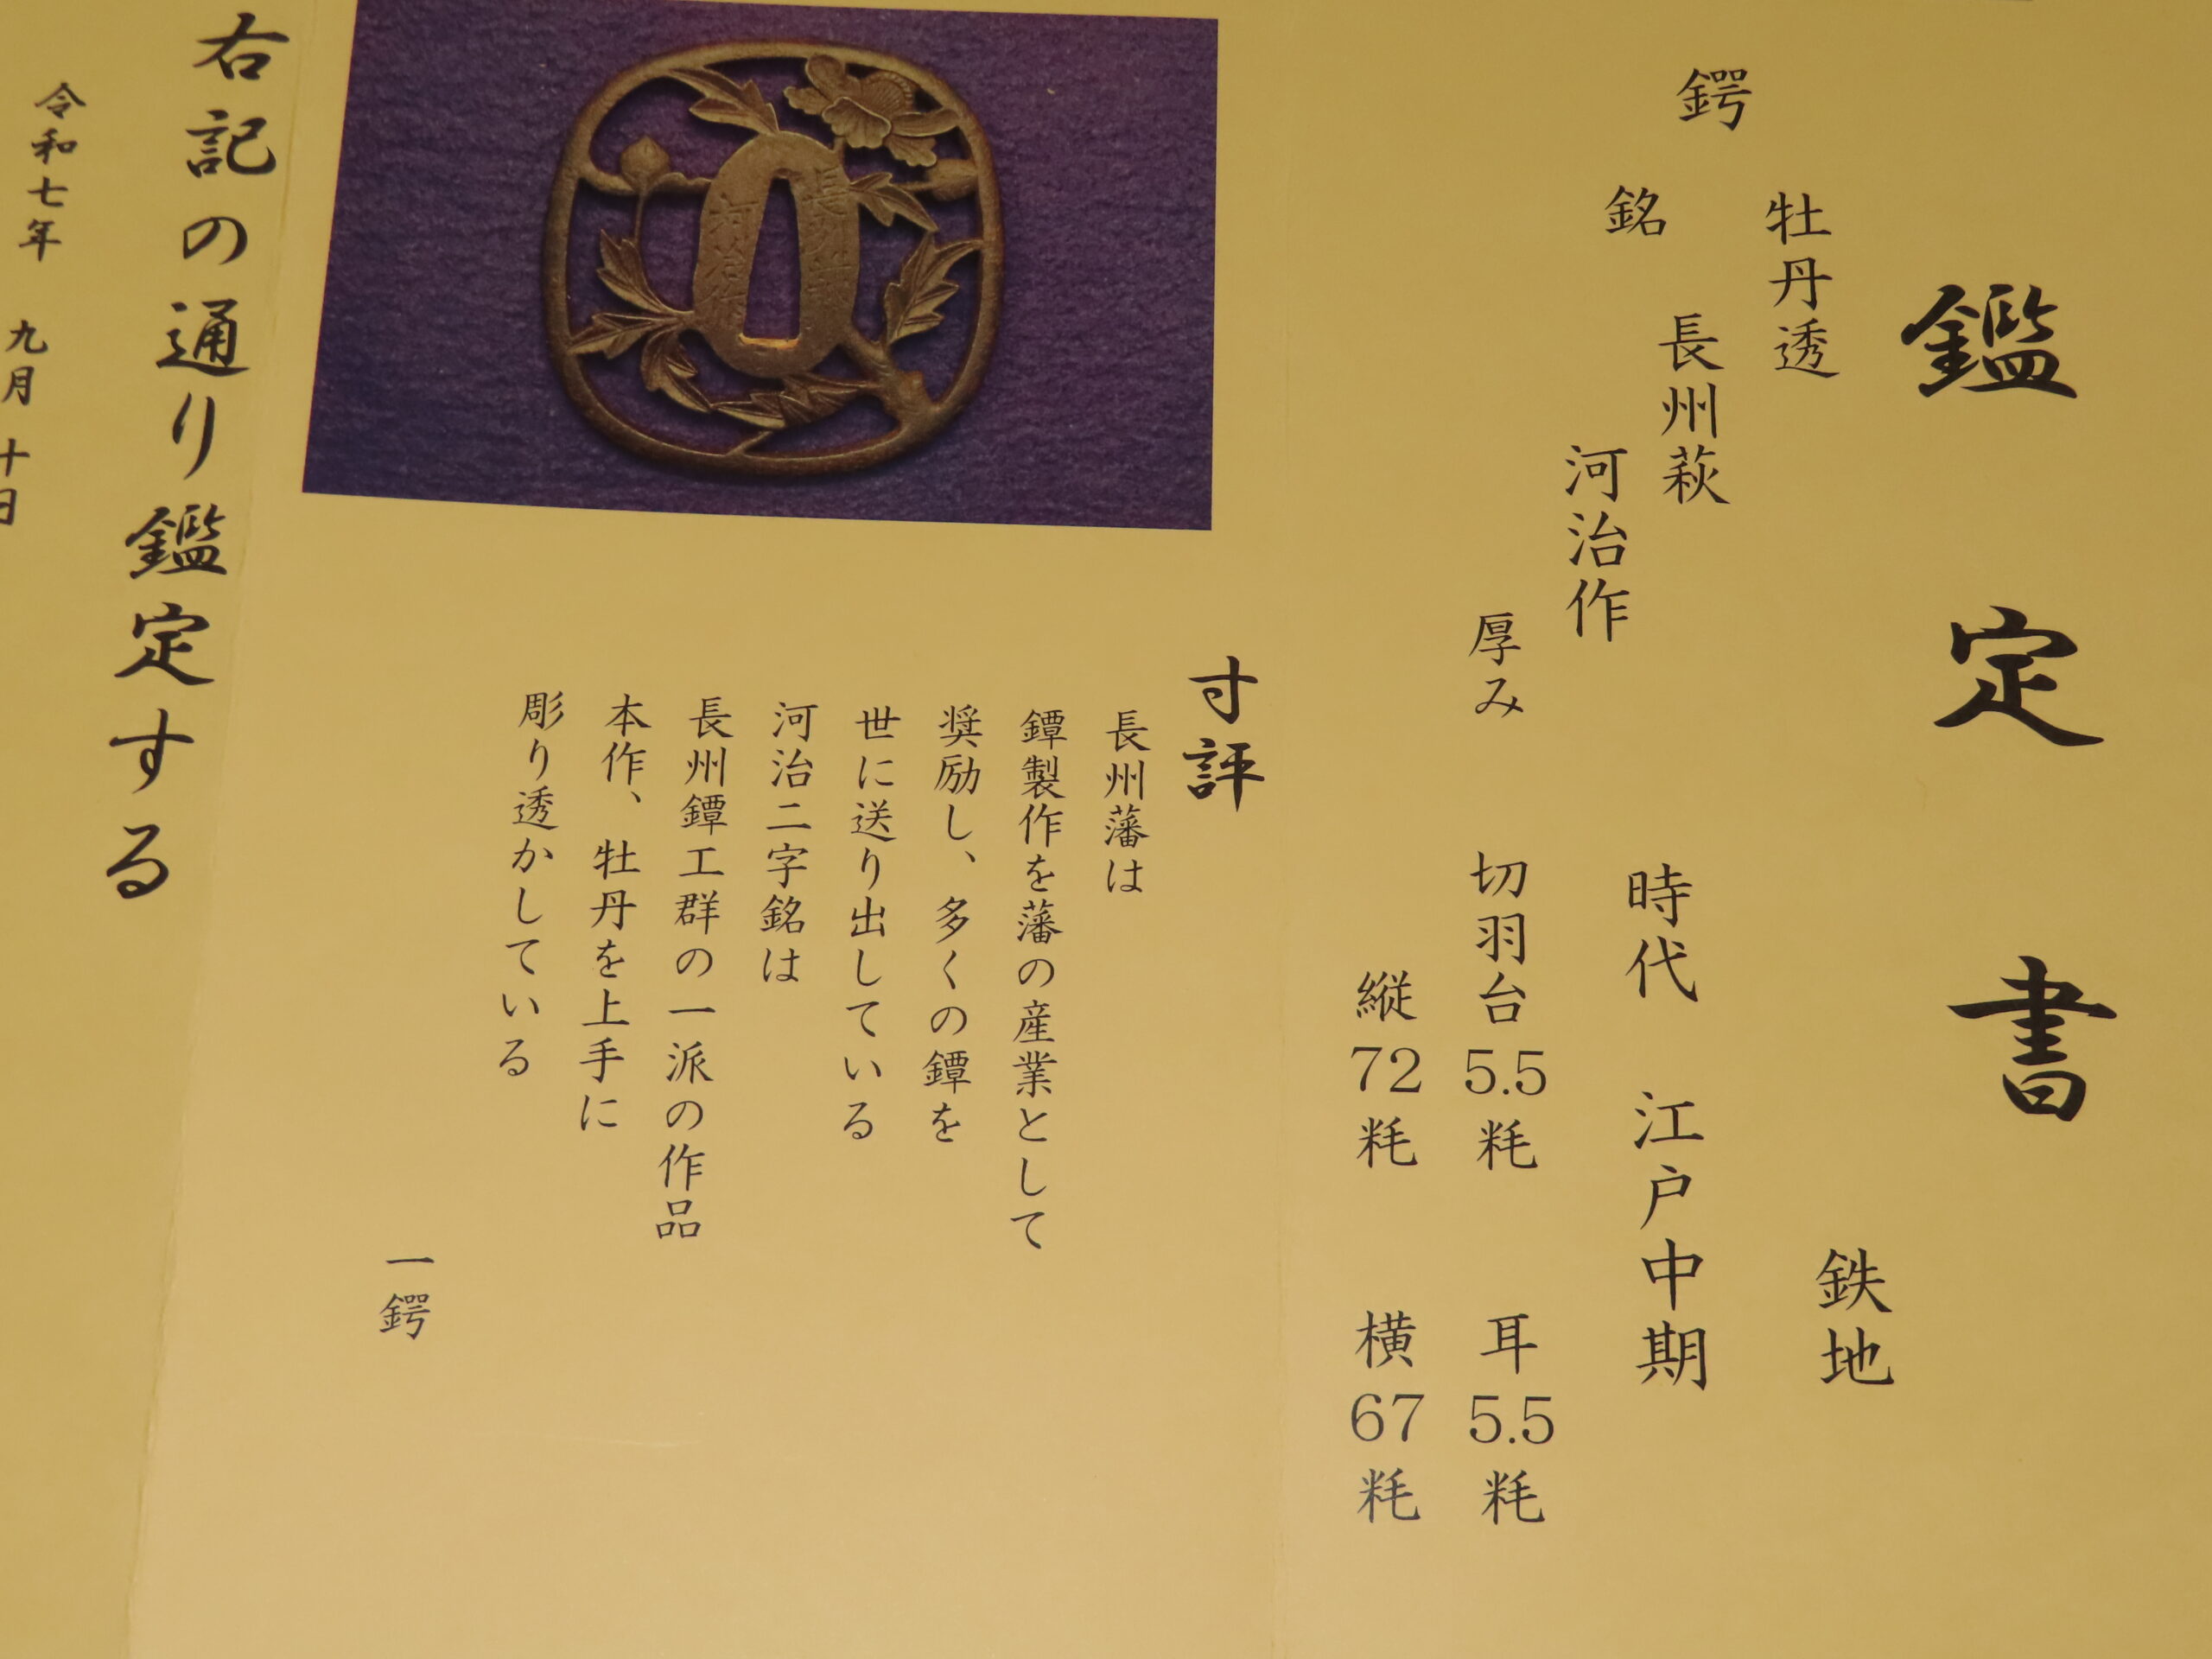 鑑定書
鍔
牡丹透
鉄地
銘
長州萩
河治作
時代 江戸中期
厚み 切羽台 5.5 粍 耳 5.5 粍
縦 72 粍 横 67 粍
寸評
長州藩は
鐔製作を藩の産業として
奨励し、多くの鐔を
世に送り出している
河治二字銘は
長州鐔工群の一派の作品
本作、牡丹を上手に
彫り透かしている
一鍔
長州萩
河治作
右記の通り鑑定する
令和七年 九月 十日